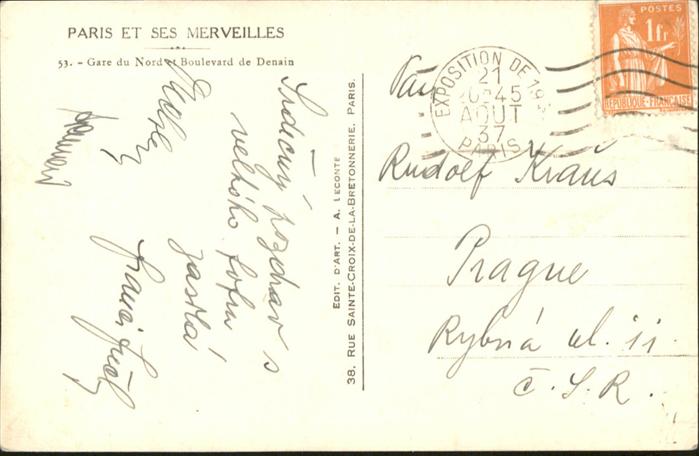 PARIS ET SES MERVEILLES
53. - Gare du Nord et Boulevard de Denain
Srdečný pozdrav s
velkého
zasílá
EDIT. D'ART. — A. LECONTE
38, RUE SAINTE-CROIX-DE-LA-BRETONNERIE, PARIS.
POSTES
1fr
REPUBLIQUE-FRANÇAISE
EXPOSITION DE 19
21
45
AOUT
37
PARIS
Pan
Rudolf Kraus
Prague
Rybná ul. ii.
Č.S.R.